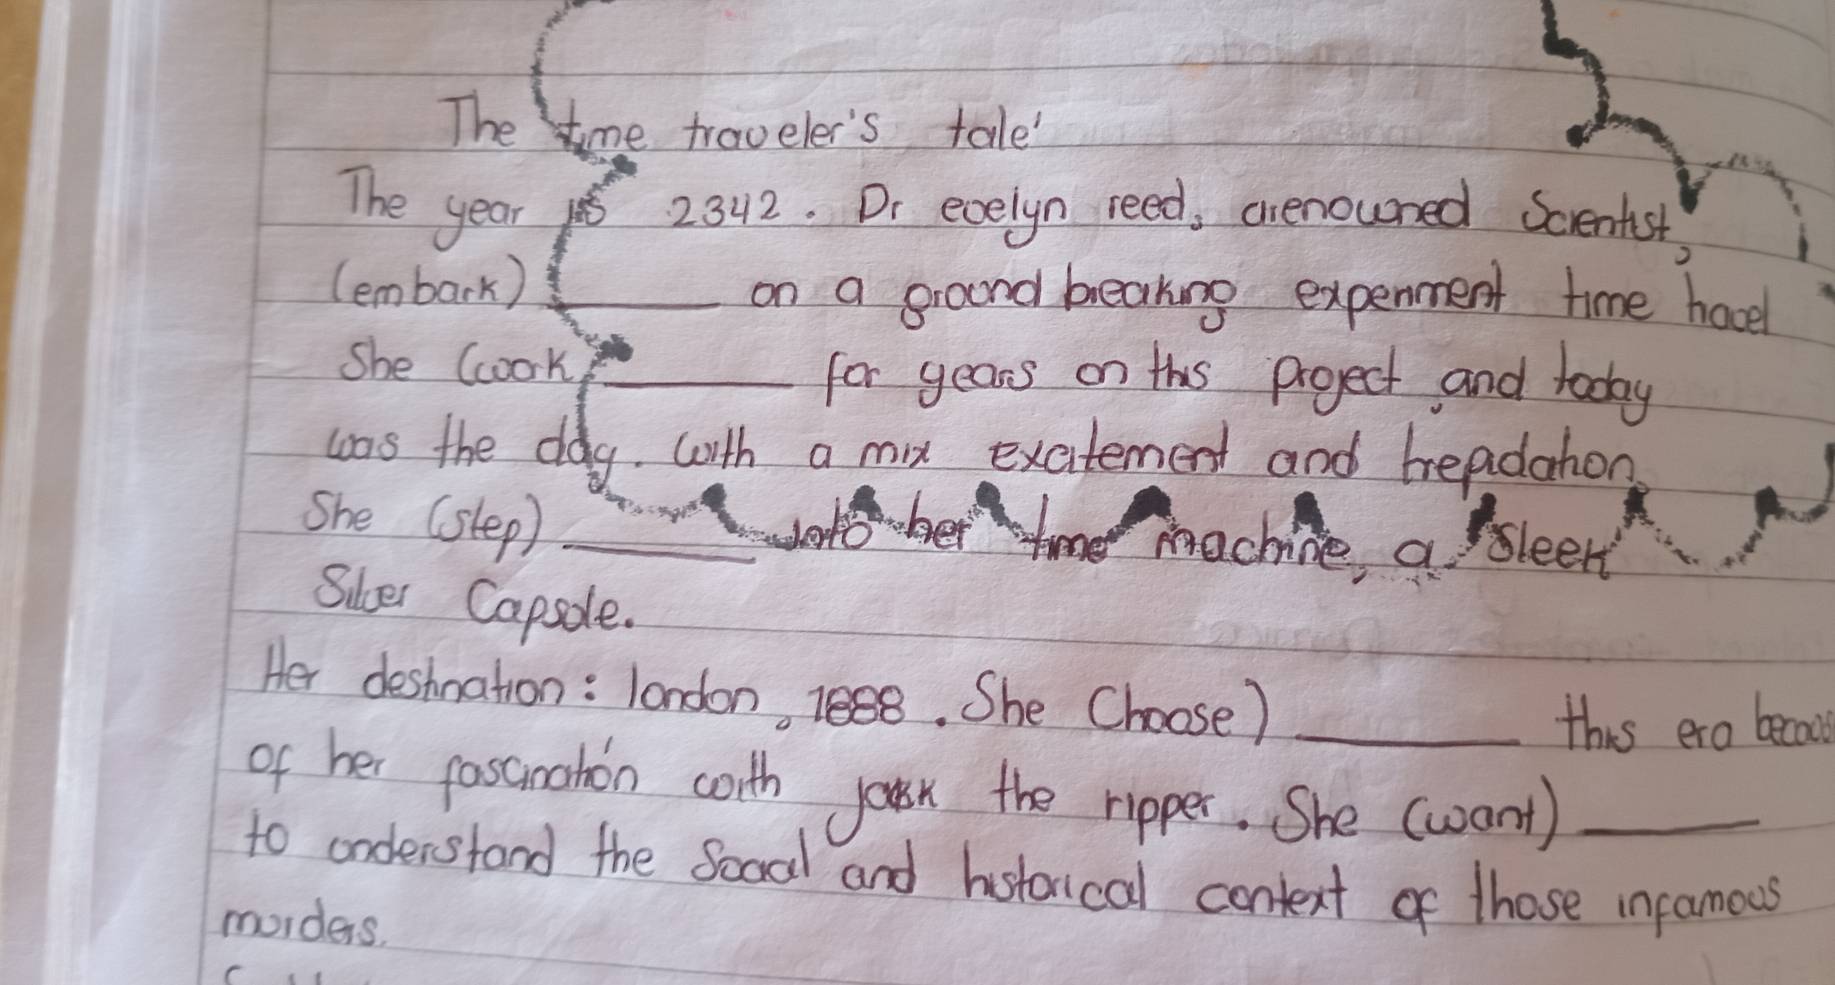 The time traveler's tale'
The year is 2342. Dr evelyn reed, arenowned Scientist,
(embark) ______ on a ground breaking experiment time
She (work) ______ for years on this project and today
was the day. With a mix excitement and trepidation,
She (step) ______ into her time machine, a sleek
Silver Capsule.
Her destination: london, 1888. She Choose) ______ this era
of her fascination with jack the ripper. She (want) ______
to understand the Social and historical context of those infamous
murders.